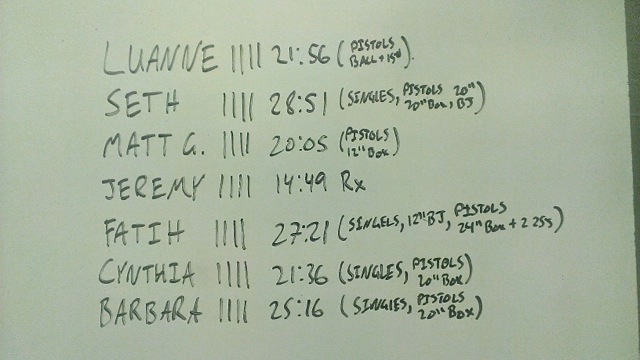 LUANNE |||| 21:56 (PISTOLS
BALL + 15#).
SETH |||| 28:51 (SINGLES, PISTOLS 20"
20" BOX, BJ)
MATT G. |||| 20:05 (PISTOLS
12" BOX)
JEREMY |||| 14:49 Rx
FATIH |||| 27:21 (SINGELS, 12" BJ, PISTOLS
24" BOX + 2 25s)
CYNTHIA |||| 21:36 (SINGLES, PISTOLS
20" BOX)
BARBARA |||| 25:16 (SINGLES, PISTOLS
20" BOX)